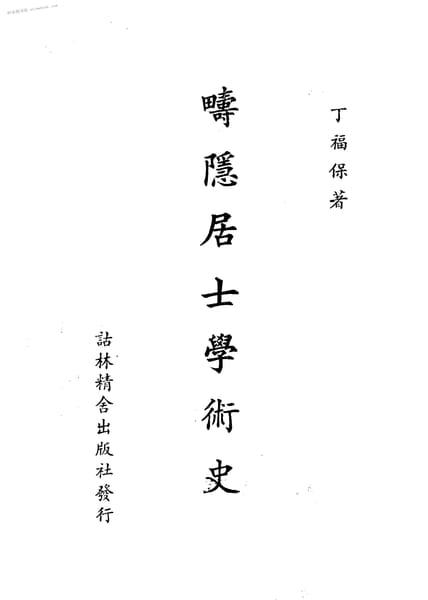 丁福保著
疇隱居士學術史
詁林精舍出版社發行